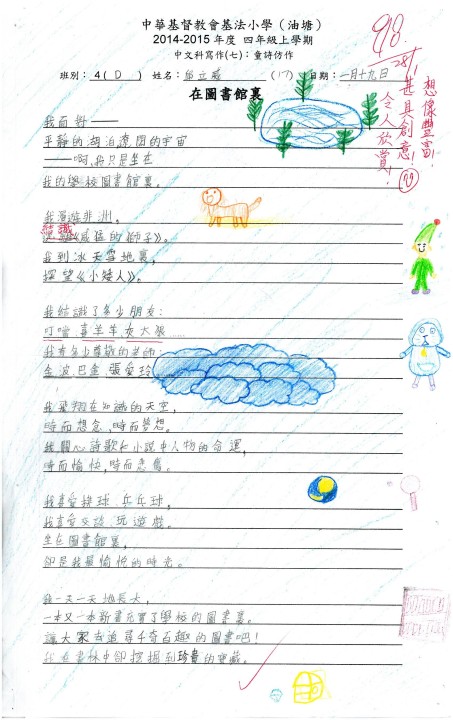 中華基督教會基法小學（油塘）
2014-2015 年度 四年級上學期
中文科寫作(七)：童詩仿作
班別：4(D) 姓名： (17) 日期：一月十九日
98
想像豐富！
甚具創意！
令人欣賞！
在圖書館裏
我面對——
平靜的湖泊遼闊的宇宙
——啊，我只是坐在
我的學校圖書館裏。
我漫遊非洲，
結識《威猛的獅子》。
我到冰天雪地裏，
探望《小矮人》。
我結識了多少朋友：
叮噹 喜羊羊 灰太狼
我有多少尊敬的老師：
金波 巴金 張愛玲
我飛翔在知識的天空，
時而想念，時而夢想。
我關心詩歌和小說中人物的命運，
時而愉快，時而悲傷。
我喜愛接球 乒乓球，
我喜愛交談 玩遊戲。
坐在圖書館裏，
卻是我最愉悅的時光。
我一天一天地長大，
一本又一本新書充實了學校的圖書裏。
讓大家去追尋千奇百趣的圖書吧！
我在書林中卻挖掘到珍貴的寶藏。